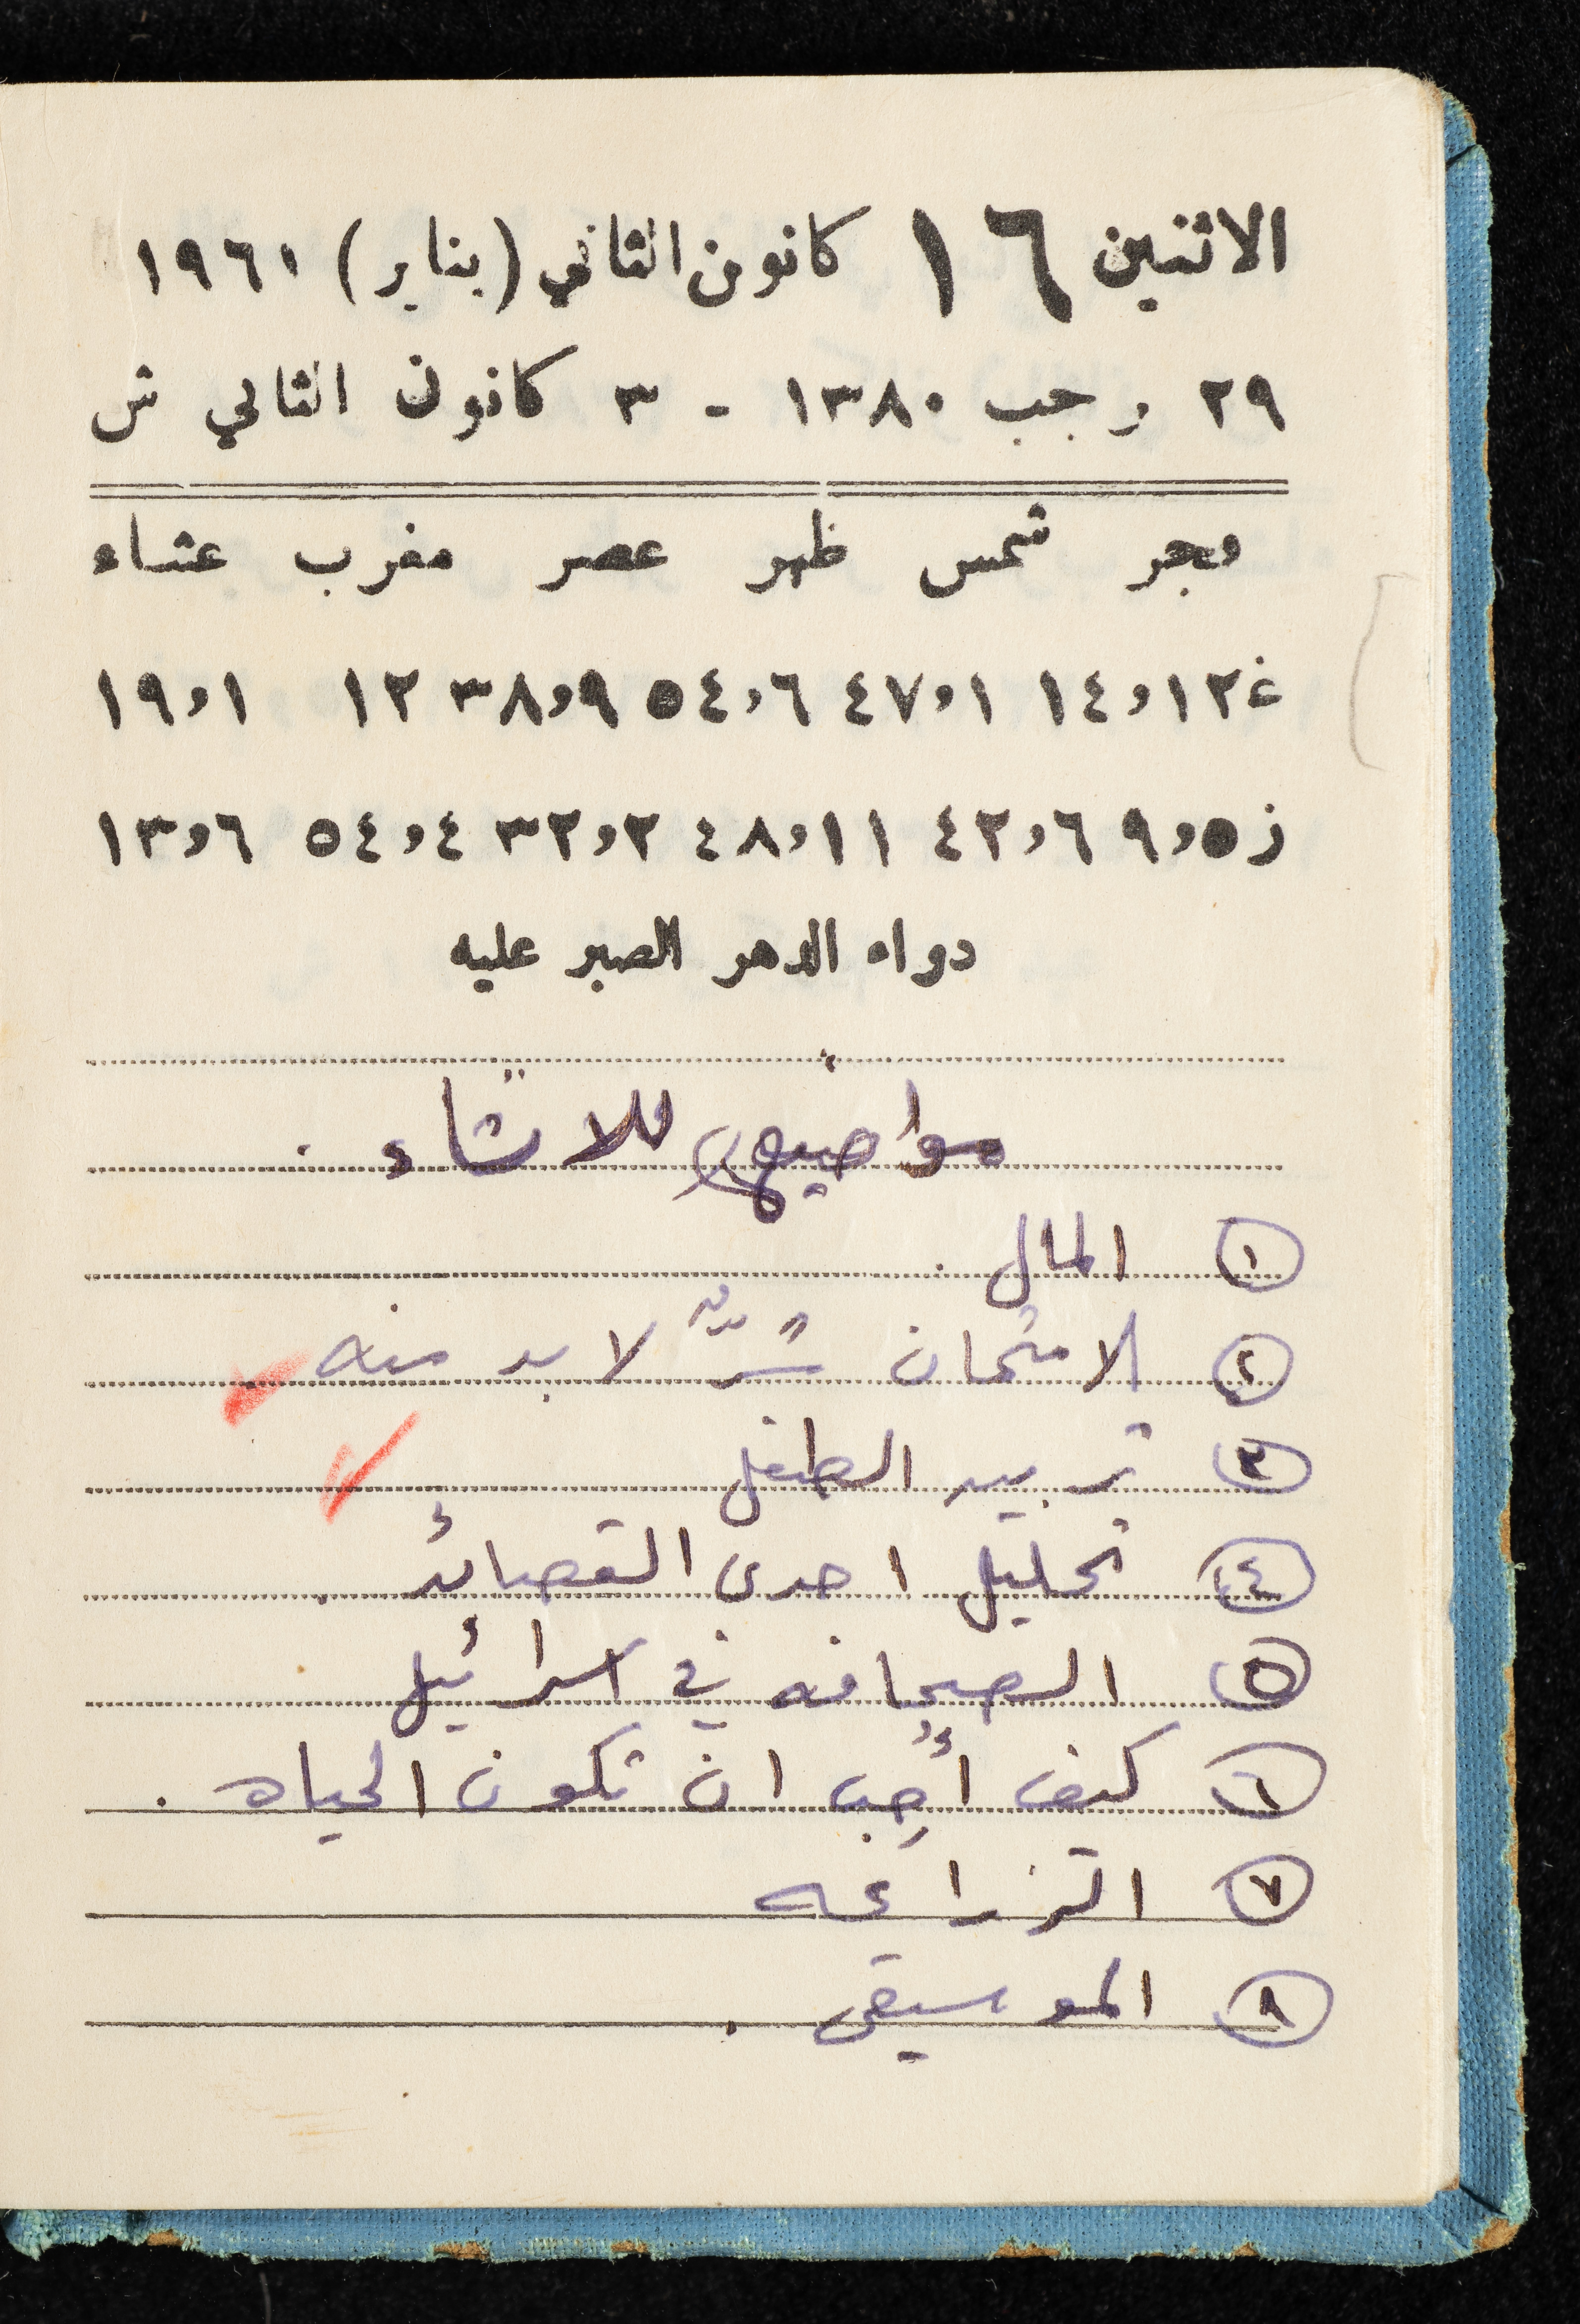 الاثنين ١٦ كانون الثاني (يناير) ١٩٦١
٢٩ رجب ١٣٨٠ - ٣ كانون الثاني ش
فجر شمس ظهر عصر مغرب عشاء
غ ١٢,١٤ ١,٤٧ ٦,٥٤ ٩,٣٨ ١٢ ١,١٩
ز ٥,٩ ٦,٤٢ ١١,٤٨ ٢,٣٢ ٤,٥٤ ٦,١٣
دواء الدهر الصبر عليه
مواضيع للانشاء .
١ المال .
٢ الامتحان شرٌّ لا بد منه
٣ تربيه الطفل
٤ تحليل احدى القصائد .
٥ الصحافه في اسرائيل
٦ كيف أُحِب ان تكون الحياه .
٧ الزراعه
٨ الموسيقى .